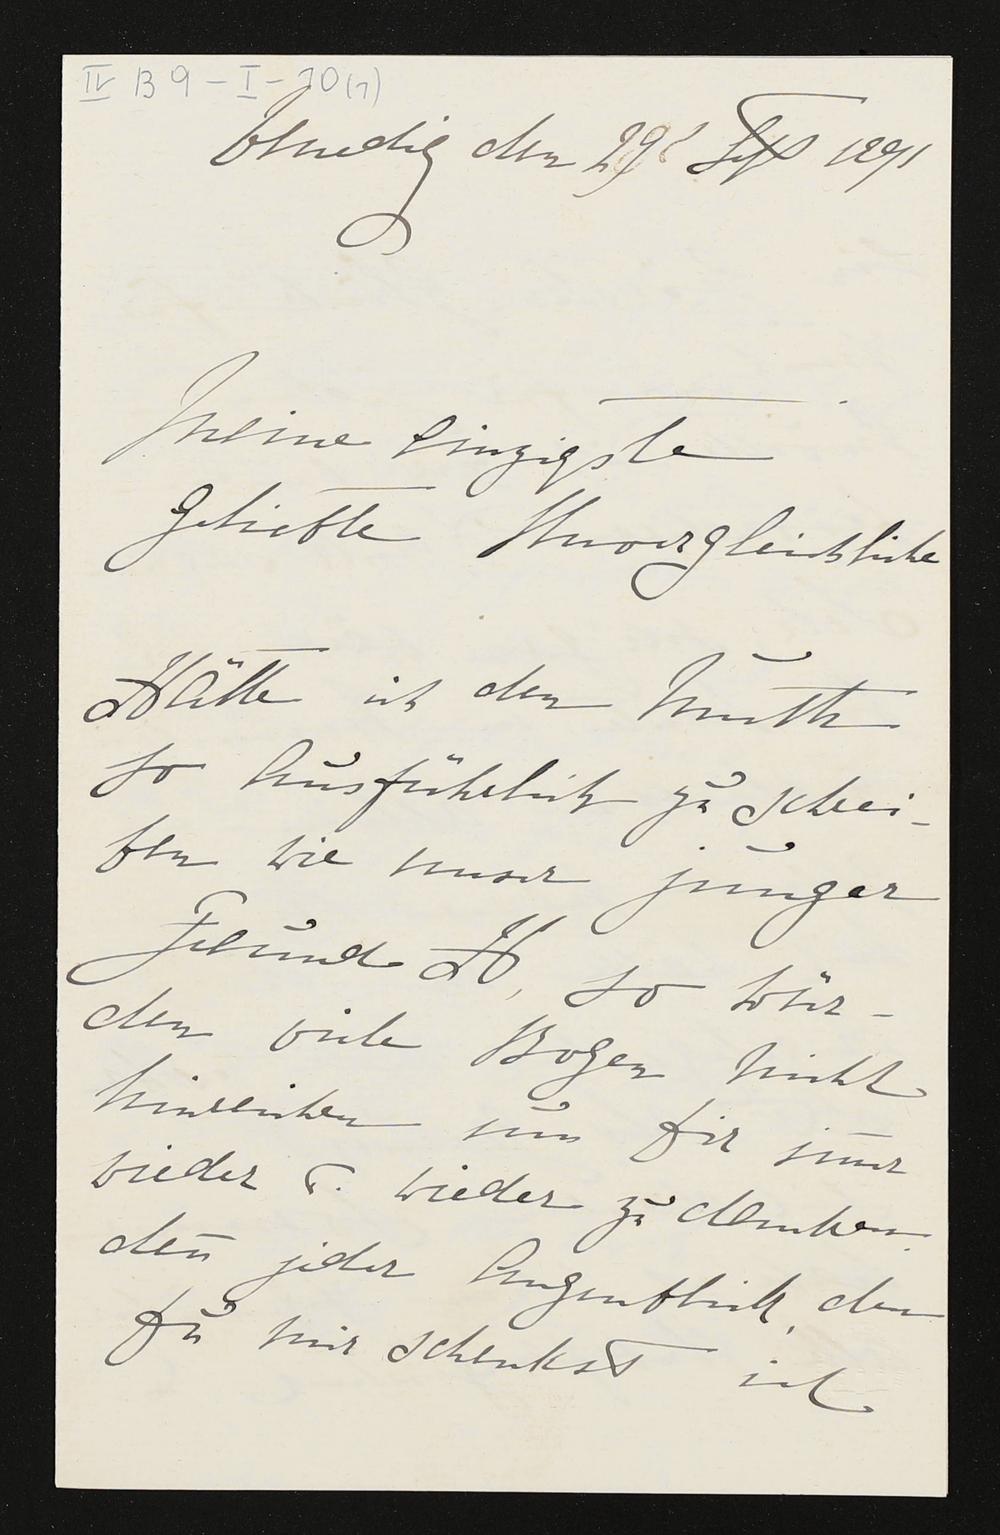 IV B 9 - I - 10 (1)
Venedig den 29t Sept 1891
Meine Einzigste
Geliebte Unvergleichliche
Hätte ich den Muth
so Ausführlich zu schrei-
ben wie unser junger
Freund H, so wür-
den viele Bogen nicht
hinreichen um Dir im̅er
wieder u. wieder zu danken
den̅ jeder Augenblick, den
Du mir schenkst ist